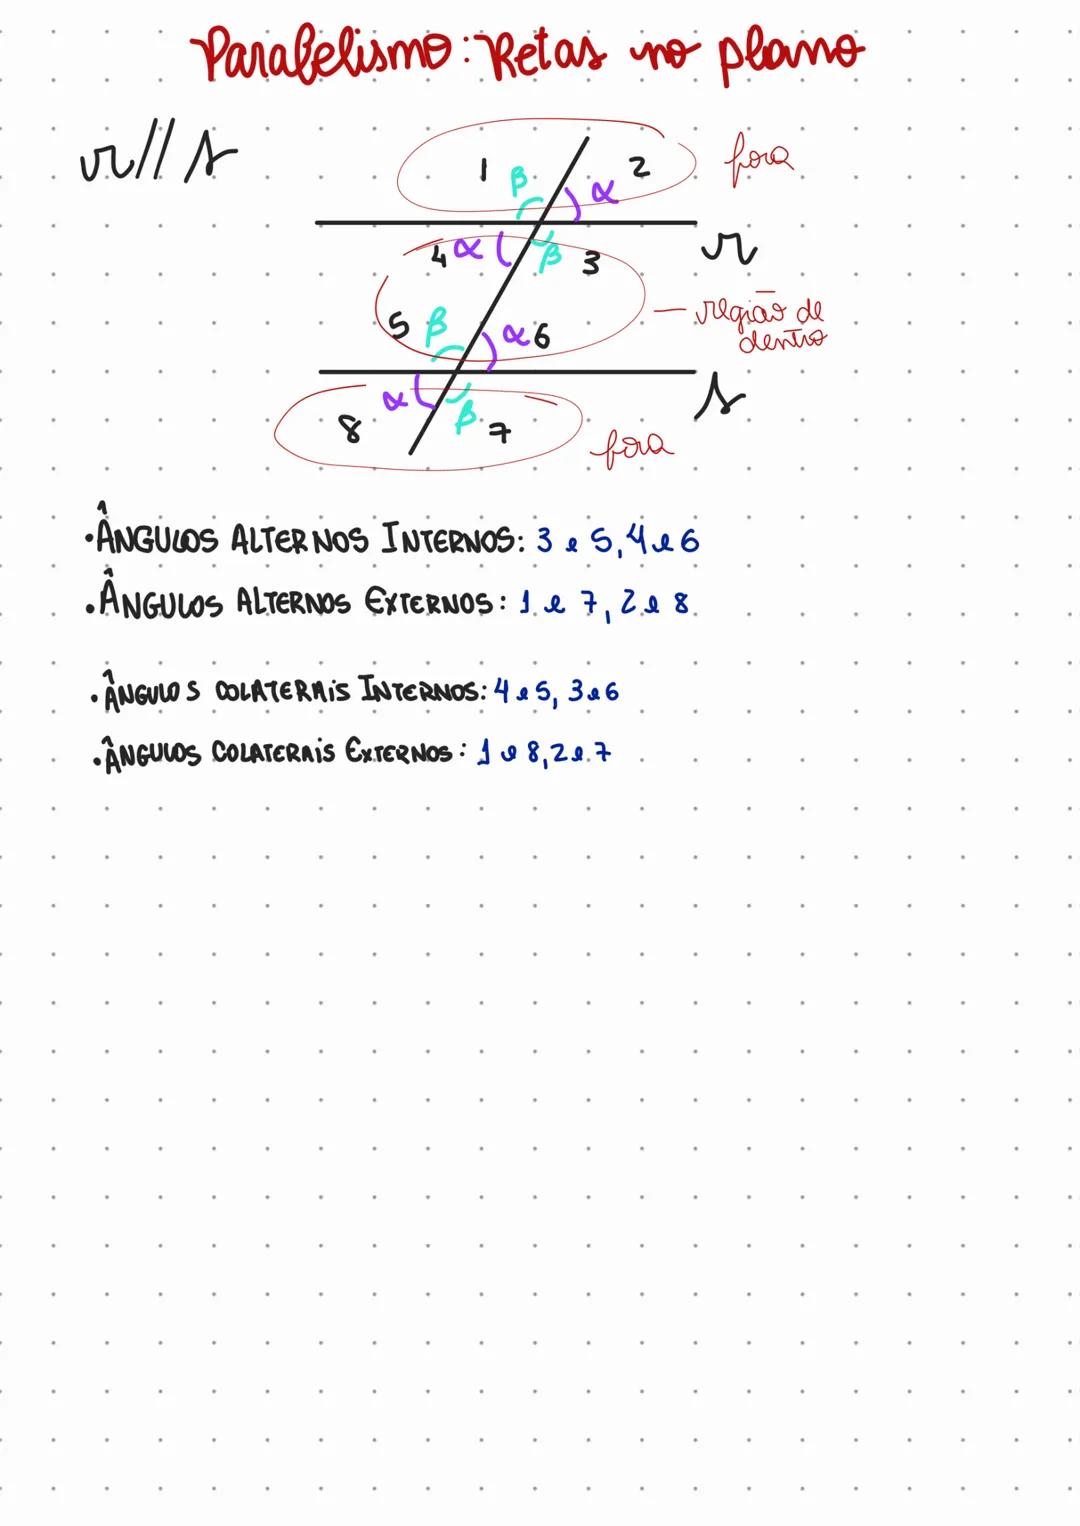 Paralelismo: Retas no plano
r // s
1 β 2 α fora
4 α β 3 r
5 β α 6 região de
dentro
8 α β 7 s
fora
• ÂNGULOS ALTERNOS INTERNOS: 3 e 5, 4 e 6
• ÂNGULOS ALTERNOS EXTERNOS: 1 e 7, 2 e 8
• ÂNGULOS COLATERAIS INTERNOS: 4 e 5, 3 e 6
• ÂNGULOS COLATERAIS EXTERNOS: 1 e 8, 2 e 7